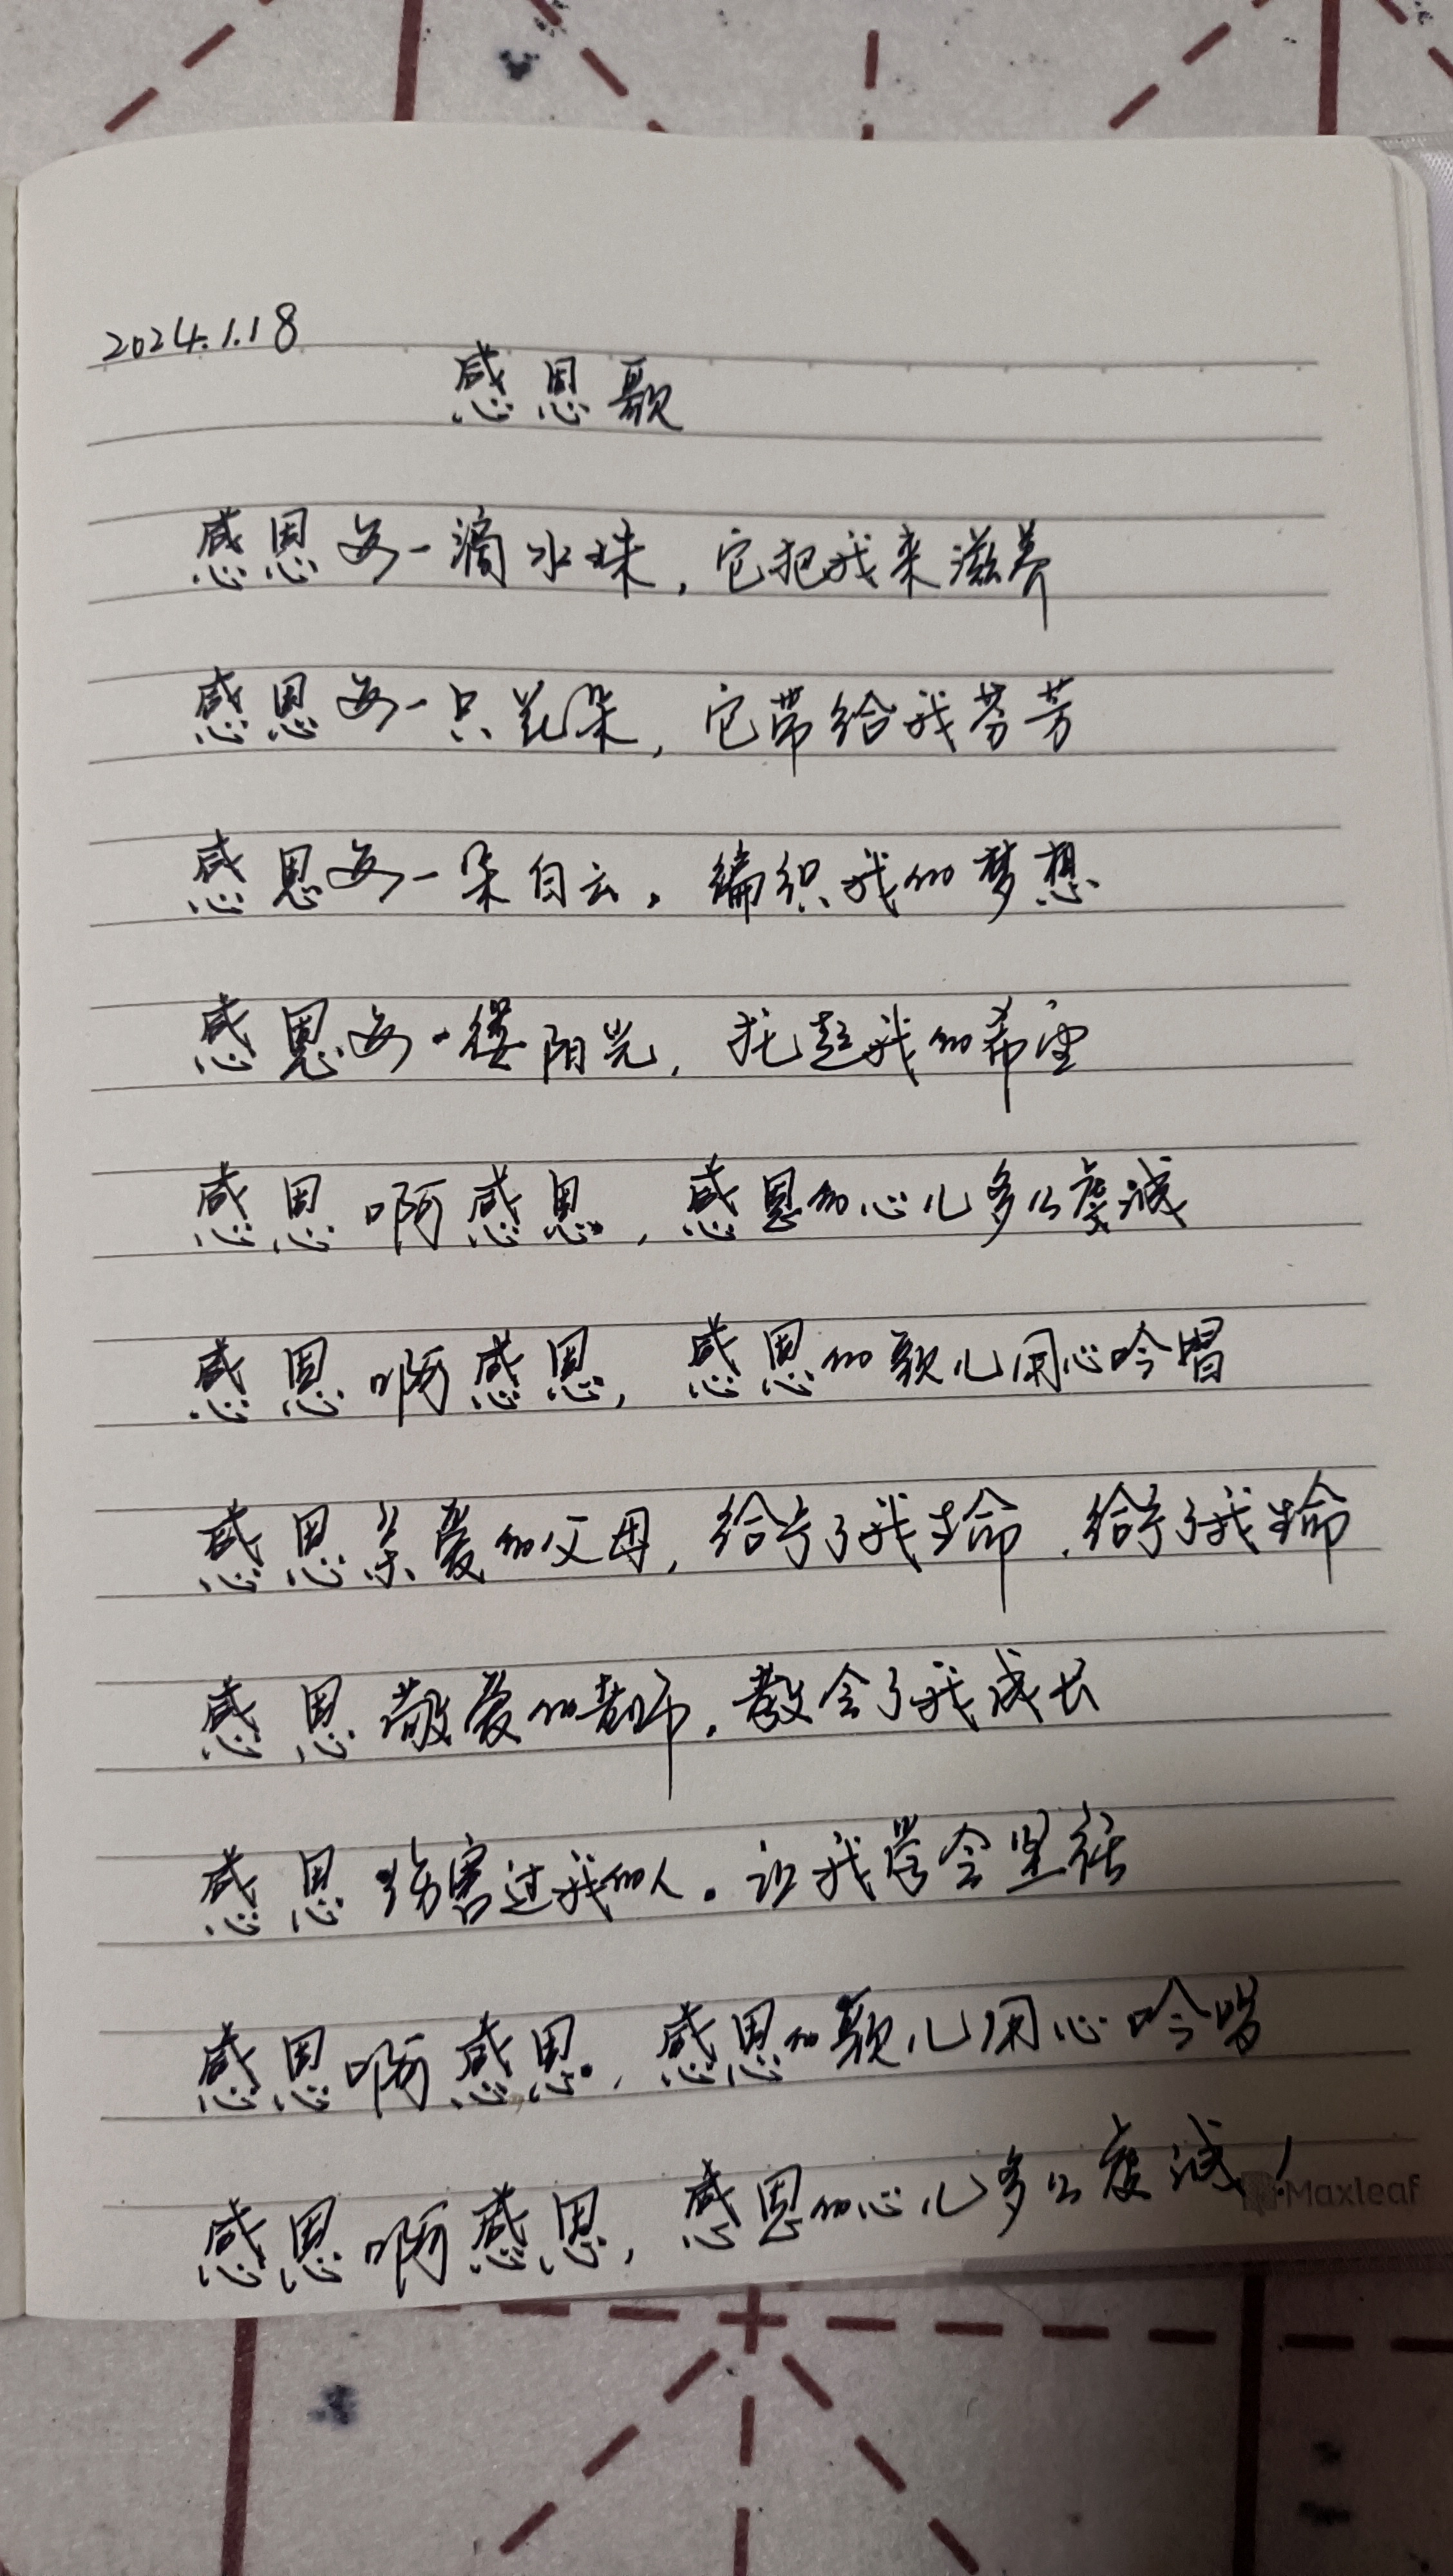 2024.1.18
感恩歌
感恩每一滴水珠，它把我来滋养
感恩每一只花朵，它带给我芬芳
感恩每一朵白云，编织我的梦想
感恩每一缕阳光，托起我的希望
感恩啊感恩，感恩的心儿多么虔诚
感恩啊感恩，感恩的歌儿用心吟唱
感恩亲爱的父母，给予了我生命，给予了我生命
感恩敬爱的老师，教会了我成长
感恩伤害过我的人，让我学会坚强
感恩啊感恩，感恩的歌儿用心吟唱
感恩啊感恩，感恩的心儿多么虔诚！
Maxleaf